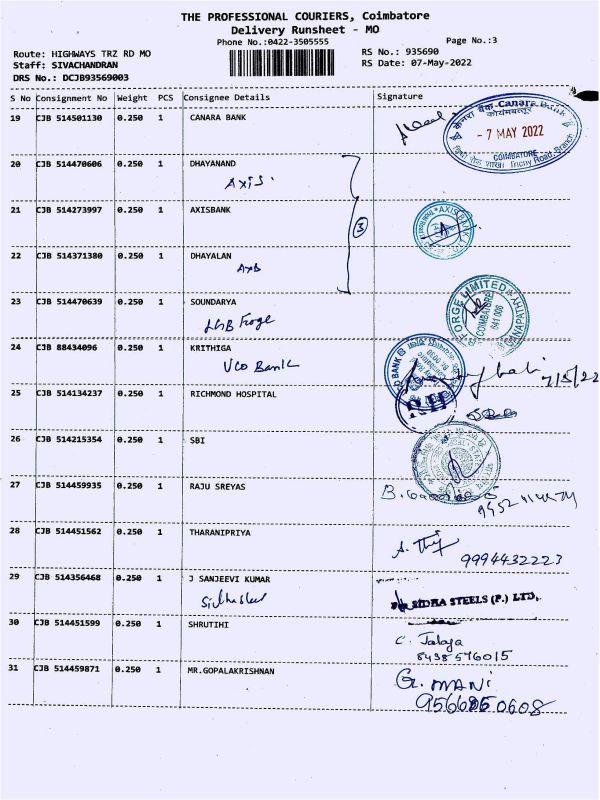 THE PROFESSIONAL COURIERS, Coimbatore
Delivery Runsheet - MO
Phone No.:0422-3505555
Page No.:3
Route: HIGHWAYS TRZ RD MO
RS No.: 935690
Staff: SIVACHANDRAN
RS Date: 07-May-2022
DRS No.: DCJB93569003
S No Consignment No Weight PCS Consignee Details Signature
19 CJB 514501130 0.250 1 CANARA BANK
Canara Bank
- 7 MAY 2022
COIMBATORE
Trichy Road, Branch
20 CJB 514470606 0.250 1 DHAYANAND
AXIS.
21 CJB 514273997 0.250 1 AXISBANK
3
AXIS BANK
22 CJB 514371380 0.250 1 DHAYALAN
Axis
23 CJB 514470639 0.250 1 SOUNDARYA
LGB Froge
FORGE LIMITED
COIMBATORE
641 006
24 CJB 88434096 0.250 1 KRITHIGA
UCO Bank
7/5/22
25 CJB 514134237 0.250 1 RICHMOND HOSPITAL
26 CJB 514215354 0.250 1 SBI
27 CJB 514459935 0.250 1 RAJU SREYAS
28 CJB 514451562 0.250 1 THARANIPRIYA
9994432223
29 CJB 514356468 0.250 1 J SANJEEVI KUMAR
SIDHA STEELS (P.) LTD.
30 CJB 514451599 0.250 1 SHRUTIHI
8438576015
31 CJB 514459871 0.250 1 MR.GOPALAKRISHNAN
G. MANI